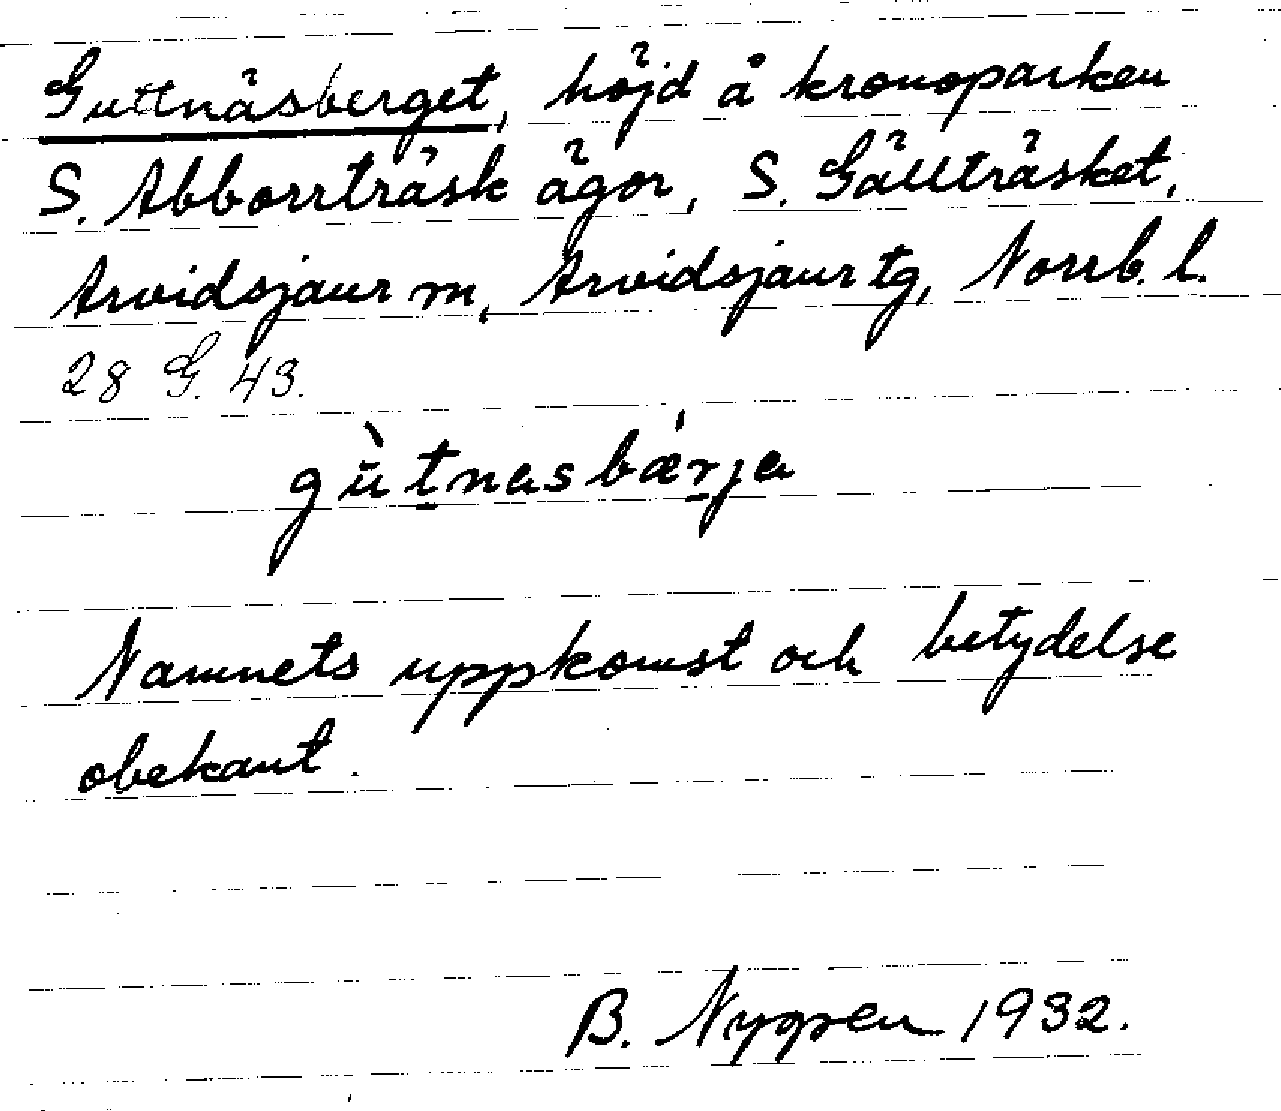 Guttnäsberget, höjd å kronoparken
S. Abborrträsk ägor, S. Gällträsket,
Arvidsjaur m, Arvidsjaur tg, Norrb. l.
28 G. 43.
gùt̠nasbær̠ja
Namnets uppkomst och betydelse
obekant.
B. Nygren 1932.